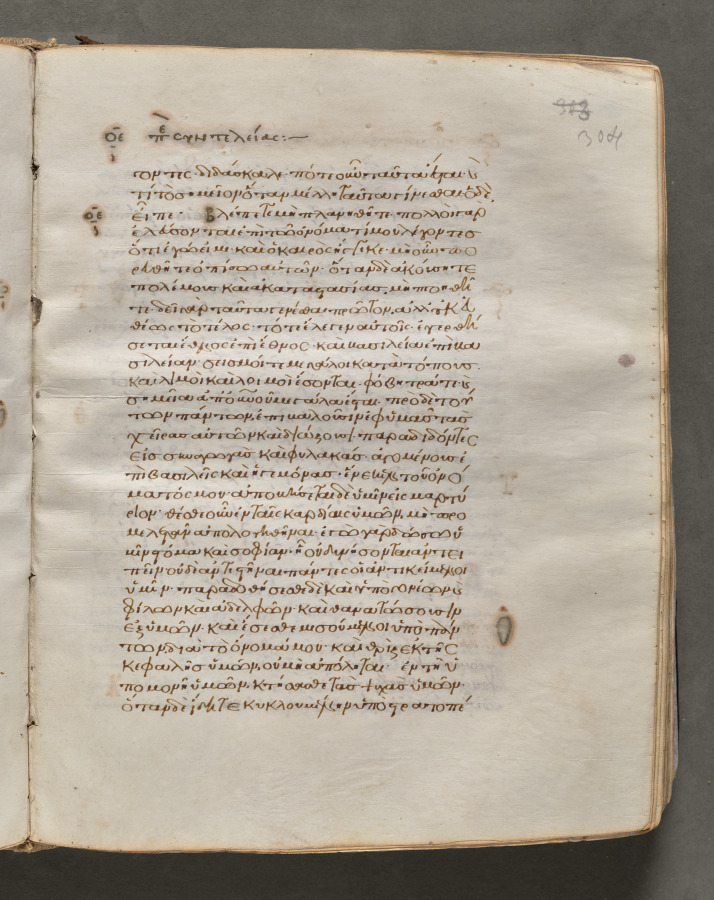 303
304
οε πε συντελείας:—
τον τες διδάσκαλε· πότε οὖν ταῦτα ἔσται· κ
τί τὸ σημεῖον ὅταν μέλλη ταῦτα γίνεσθαι· ὁ δὲ
οε εἶπε· βλέπετε μὴ πλανηθῆτε· πολλοὶ γὰρ
ἐλεύσονται ἐπὶ τῶ ὀνόματί μου λέγοντες
ὅτι ἐγώ εἰμι· καὶ ὁ καιρὸς ἤγγικε· μὴ οὖν πο
ρευθῆτε ὀπίσω αὐτῶν· ὅταν δὲ ἀκούσητε
πολέμους καὶ ἀκαταστασίας, μὴ πτοηθῆ
τε· δεῖ γὰρ ταῦτα γενέσθαι πρῶτον, ἀλλ' οὐκ εὐ
θέως τὸ τέλος· τότε ἔλεγεν αὐτοῖς· ἐγερθή
σεται ἔθνος ἐπὶ ἔθνος· καὶ βασιλεία ἐπὶ βα
σιλείαν· σεισμοί τε μεγάλοι κατὰ τόπους
καὶ λιμοὶ καὶ λοιμοὶ ἔσονται· φόβητρά τε κ
σημεῖα ἀπ' οὐρανοῦ μεγάλα ἔσται· πρὸ δὲ τού
των πάντων, ἐπιβαλοῦσιν ἐφ' ὑμᾶς τὰς
χεῖρας αὐτῶν καὶ διώξουσι· παραδιδόντες
εἰς συναγωγὰς καὶ φυλακάς· ἀγομένους ἐ
πὶ βασιλεῖς καὶ ἡγεμόνας· ἕνεκεν τοῦ ὀνό
ματός μου· ἀποβήσεται δὲ ὑμῖν εἰς μαρτύ
ριον· θέσθε οὖν ἐν ταῖς καρδίαις ὑμῶν, μὴ προ
μελετᾶν ἀπολογηθῆναι· ἐγὼ γὰρ δώσω ὑ
μῖν στόμα καὶ σοφίαν· ἧ οὐ δυνήσονται ἀντει
πεῖν οὐδὲ ἀντιστῆναι πάντες οἱ ἀντικείμενοι
ὑμῖν· παραδοθήσεσθε δὲ καὶ ὑπὸ γονέων κ
φίλων καὶ ἀδελφῶν· καὶ θανατώσουσιν
ἐξ ὑμῶν· καὶ ἔσεσθε μισούμενοι ὑπὸ πάν
των διὰ τὸ ὄνομά μου· καὶ θρὶξ ἐκ τῆς
κεφαλῆς ὑμῶν, οὐ μὴ ἀπόληται· ἐν τῆ ὑ
πομονῆ ὑμῶν, κτήσασθε τὰς ψυχὰς ὑμῶν·
ὅταν δὲ ἴδητε κυκλουμένην ὑπὸ στρατοπέ